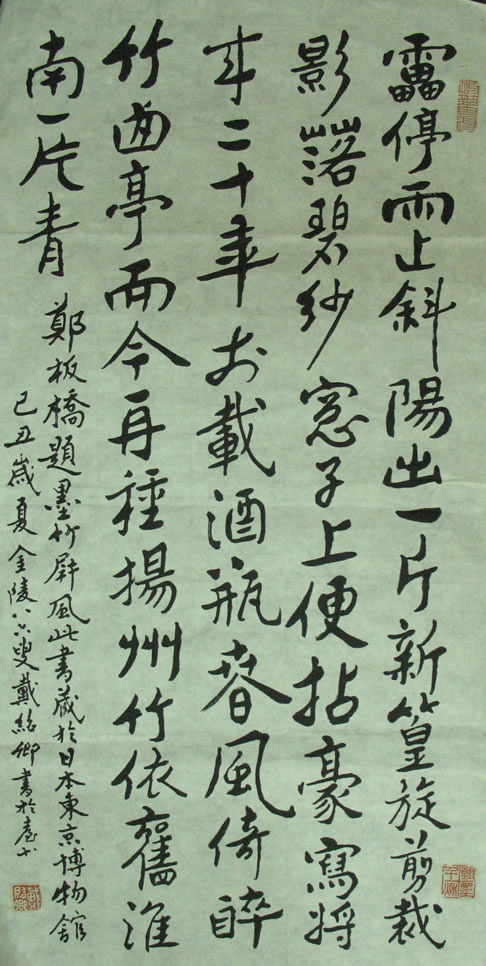 雷停雨止斜陽出一片新篁旋剪裁
影落碧紗窓子上便拈豪寫将
来二十年前載酒瓶春風倚醉
竹西亭而今再種揚州竹依舊淮
南一片青
鄭板橋題墨竹屏風此書藏於日本東京博物舘
己丑歲夏金陵八六叟戴紹卿書於